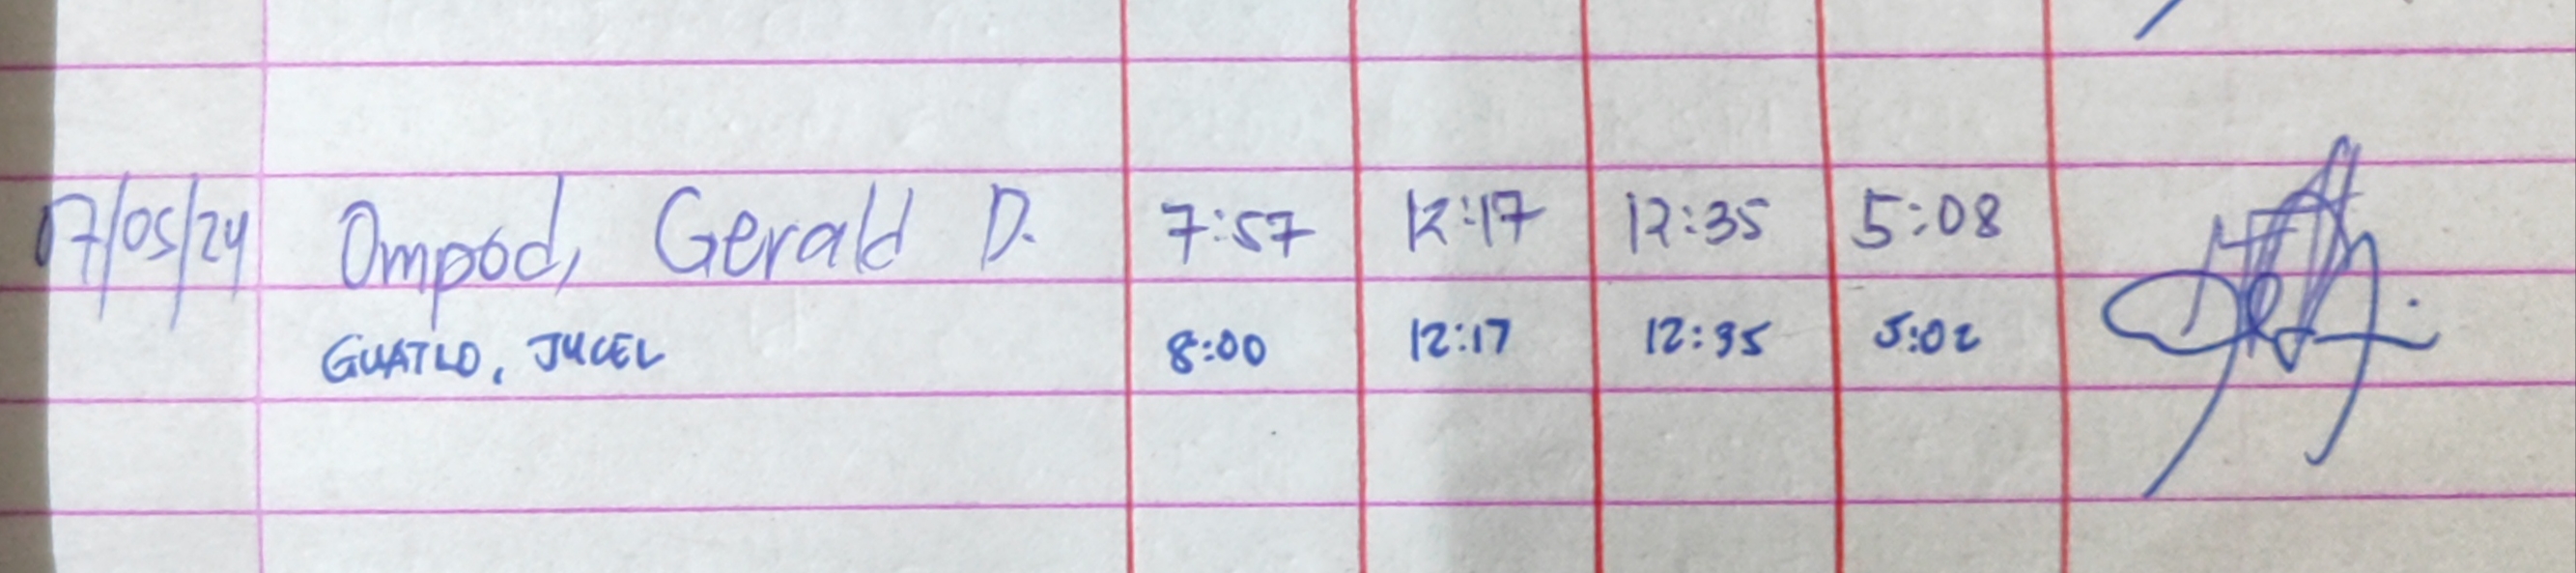 07/05/24 Ompod, Gerald D. 7:57 12:17 12:35 5:08
GUATLO, JUCEL 8:00 12:17 12:35 5:02